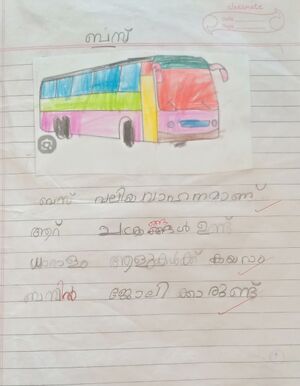 classmate
Date
Page
ബസ്
ബസ് വലിയ വാഹനമാണ്
ആറ് ചക്രങ്ങൾ ഉണ്ട്
ധാരാളം ആളുകൾക്ക് കയറാം
ബസിൽ ജോലി ക്കാരുണ്ട്